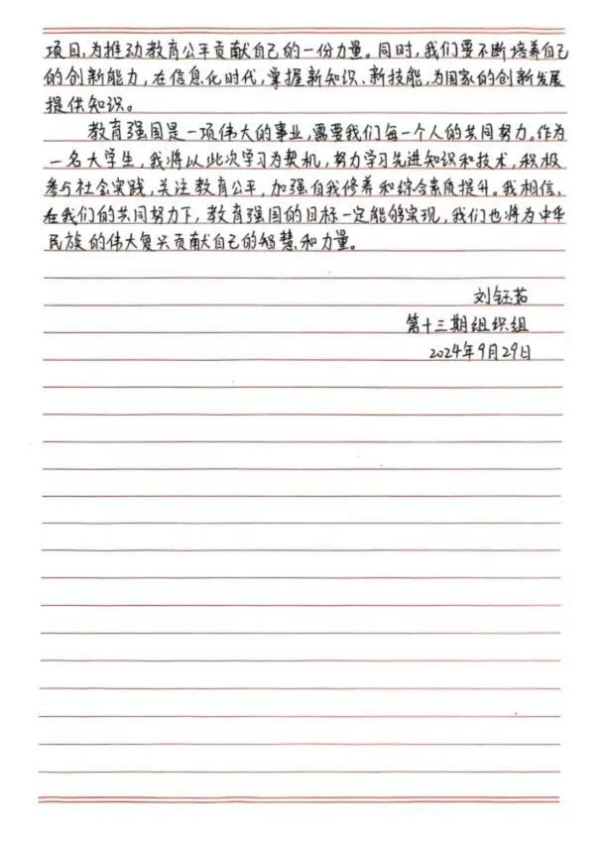 项目,为推动教育公平贡献自己的一份力量。同时,我们要不断培养自己
的创新能力,在信息化时代,掌握新知识、新技能,为国家的创新发展
提供知识。
教育强国是一项伟大的事业,需要我们每一个人的共同努力。作为
一名大学生,我将以此次学习为契机,努力学习先进知识和技术,积极
参与社会实践,关注教育公平,加强自我修养和综合素质提升。我相信,
在我们的共同努力下,教育强国的目标一定能够实现,我们也将为中华
民族的伟大复兴贡献自己的智慧和力量。
刘钰茹
第十三期组织组
2024年9月29日